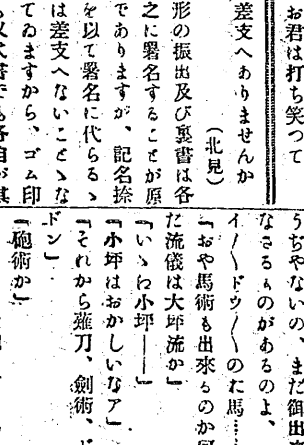 お君は打ち笑つて
差支へありませんか
（北見）
形の振出及び裏書は各
之に署名することが原
でありますが、記名捺
を以て署名に代らるゝ
は差支へないことゝな
てゐますから、ゴム印
うぢやないの、まだ御出
なさるものがあるのよ、
イ／＼ドウ／＼のた馬……
「おや馬術も出來るのか
た流儀は大坪流か」
「いゝわ小坪――」
「小坪はおかしいなア」
「それから薙刀、劍術、ド
ドン」
「砲術か」